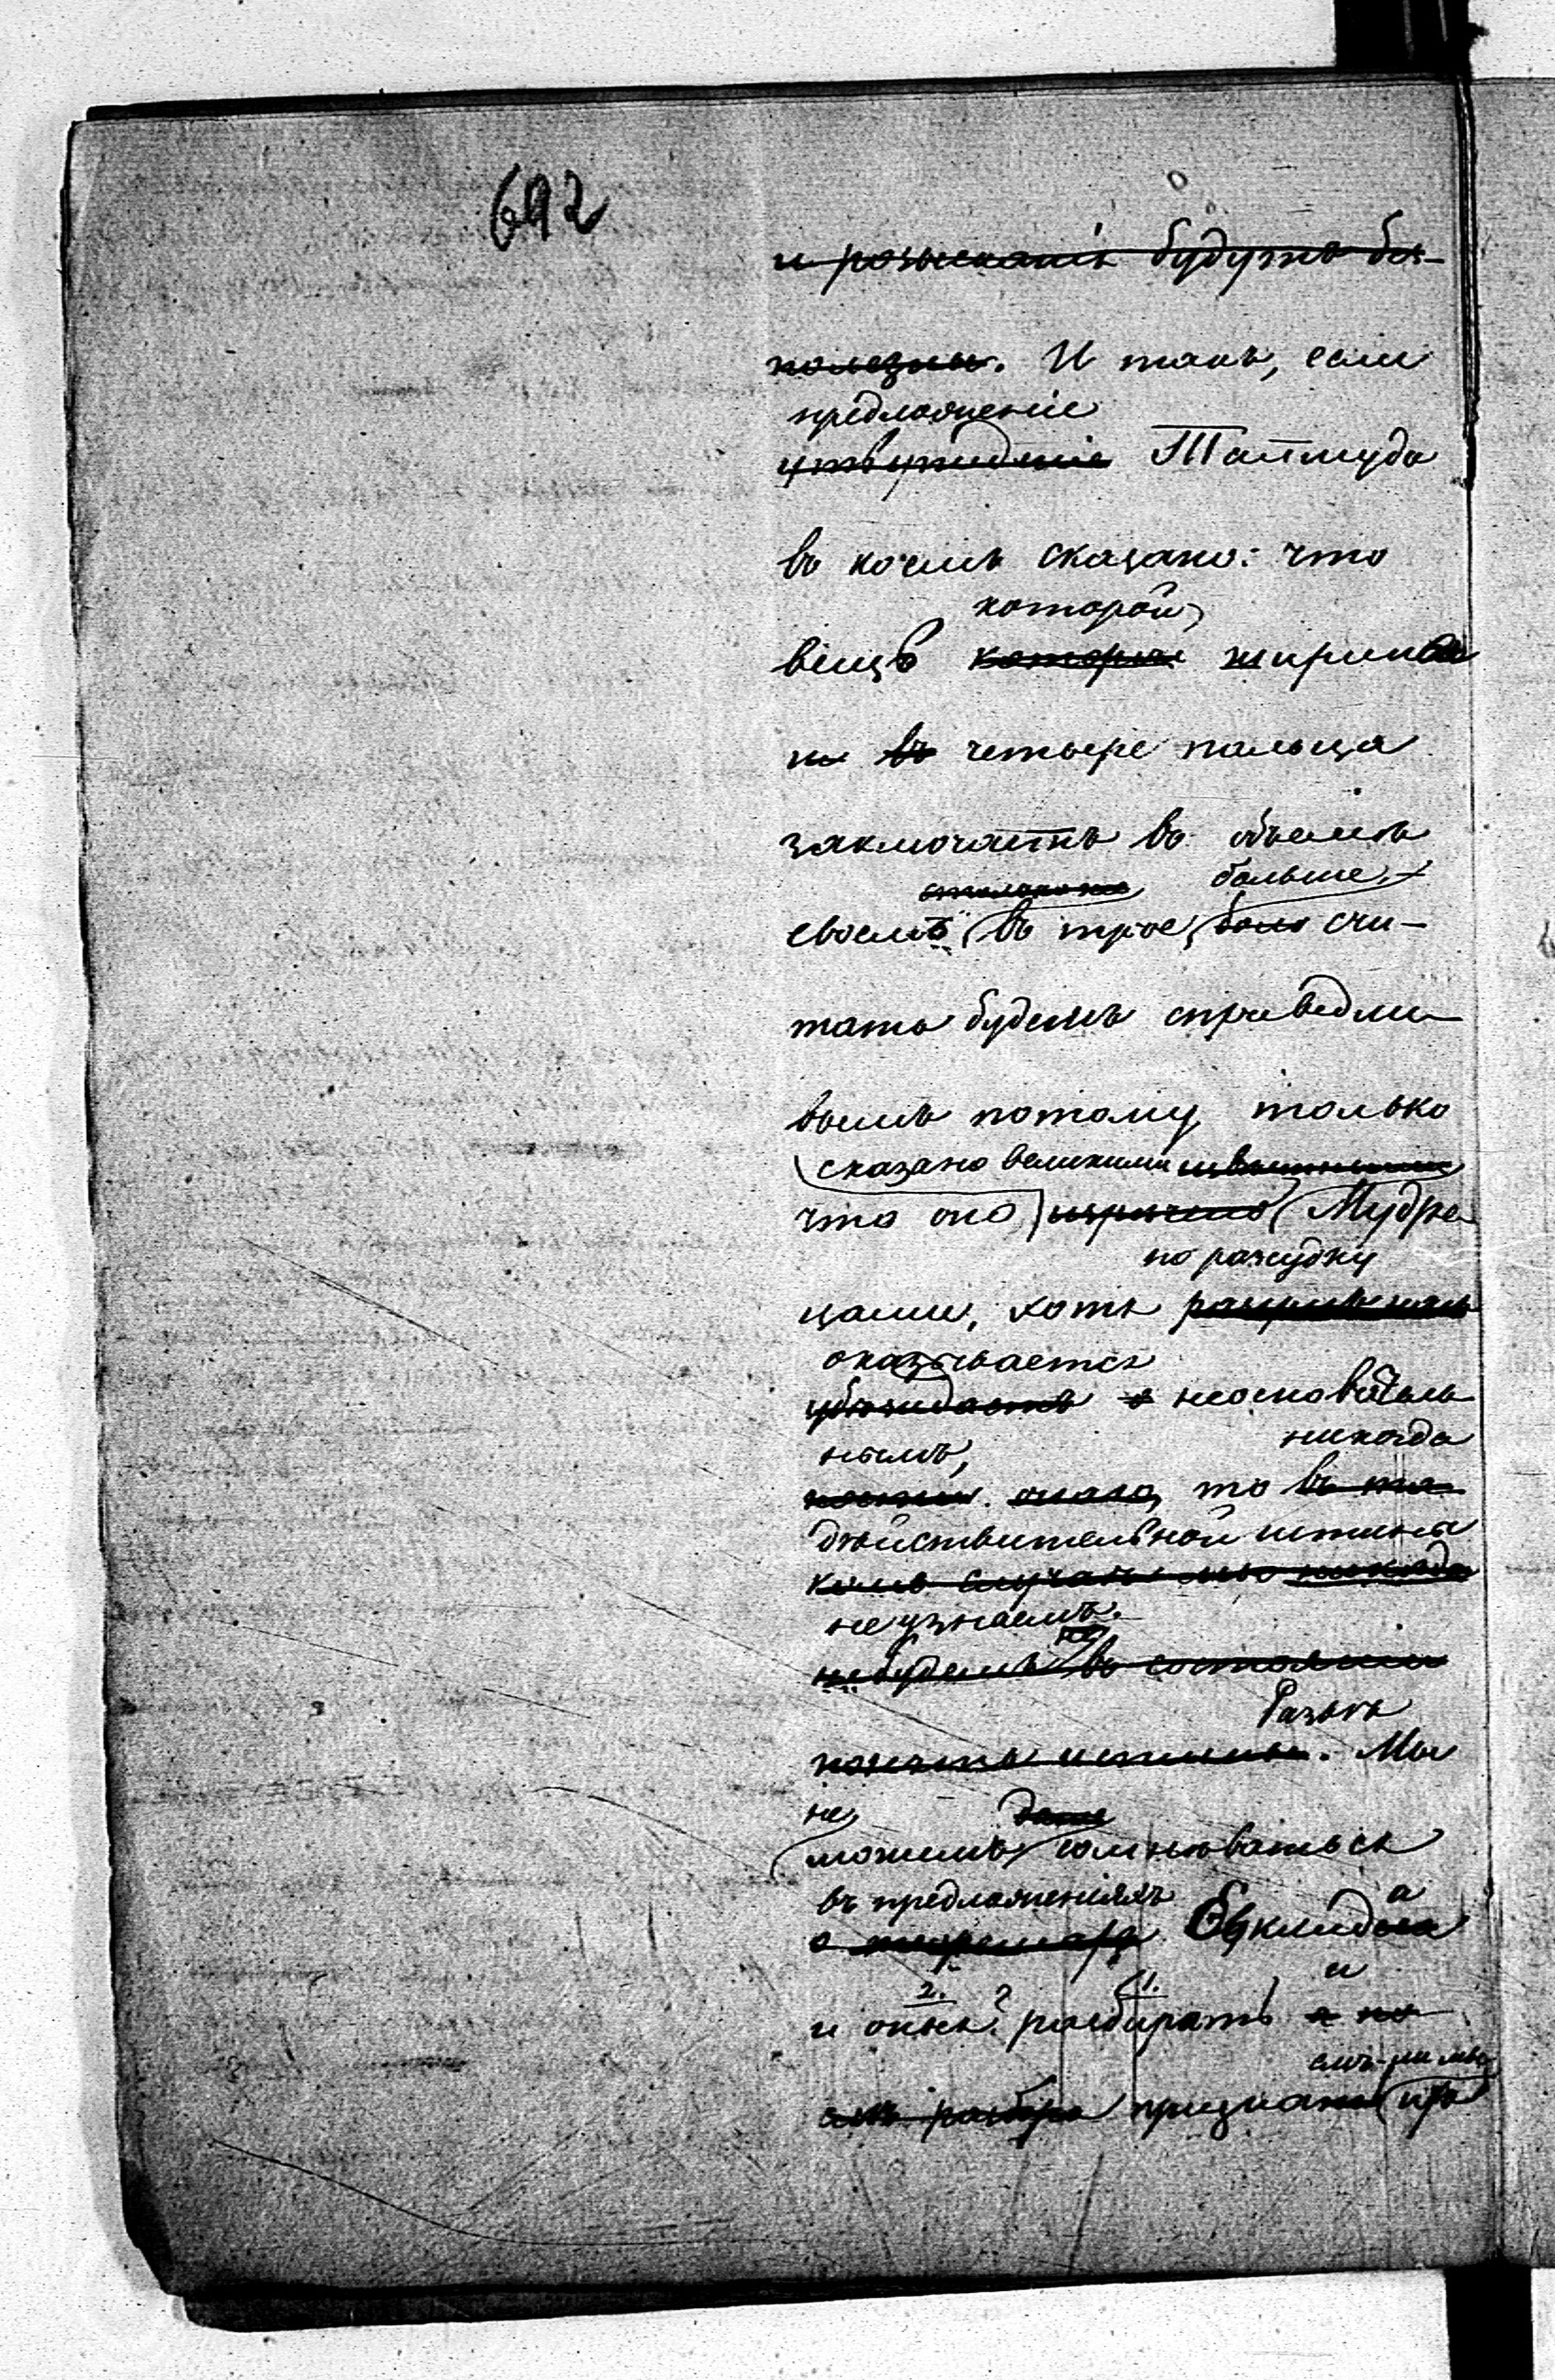 692
и розысканія будутъ без-
полезны. И такъ, если
предложеніе
утвержденіе Талмуда
въ коемъ сказано: что
которой
вещь которая ширины
въ четыре пальца
заключаетъ въ объемѣ
больше
своемъ въ трое, боль счи-
тать будемъ справедли-
вымъ потому только
сказано великими
что оно изречено Мудре
по разсудку
цами, хоть
оказывается
убѣждаетъ неоснователь
нымъ, никогда
онаго, то въ та-
дѣйствительной истины
комъ случаѣ мы никогда
не узнаемъ.
небудемъ въ состояніи
Развѣ
истины. Мы
не даже
можемъ сомнѣваться
въ предложеніяхъ а
о Евклида
и 1.
2.
и оныя? разбирать и по
емъ-ли мы
разбра признаны